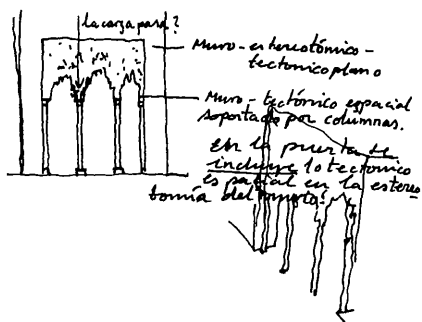 la carga pasa?
Muro-estereotómico-
tectonico plano
Muro-tectónico espacial
soportado por columnas.
En la puerta se
incluye lo tectonico
espacial en la estereo
tomía del muro!